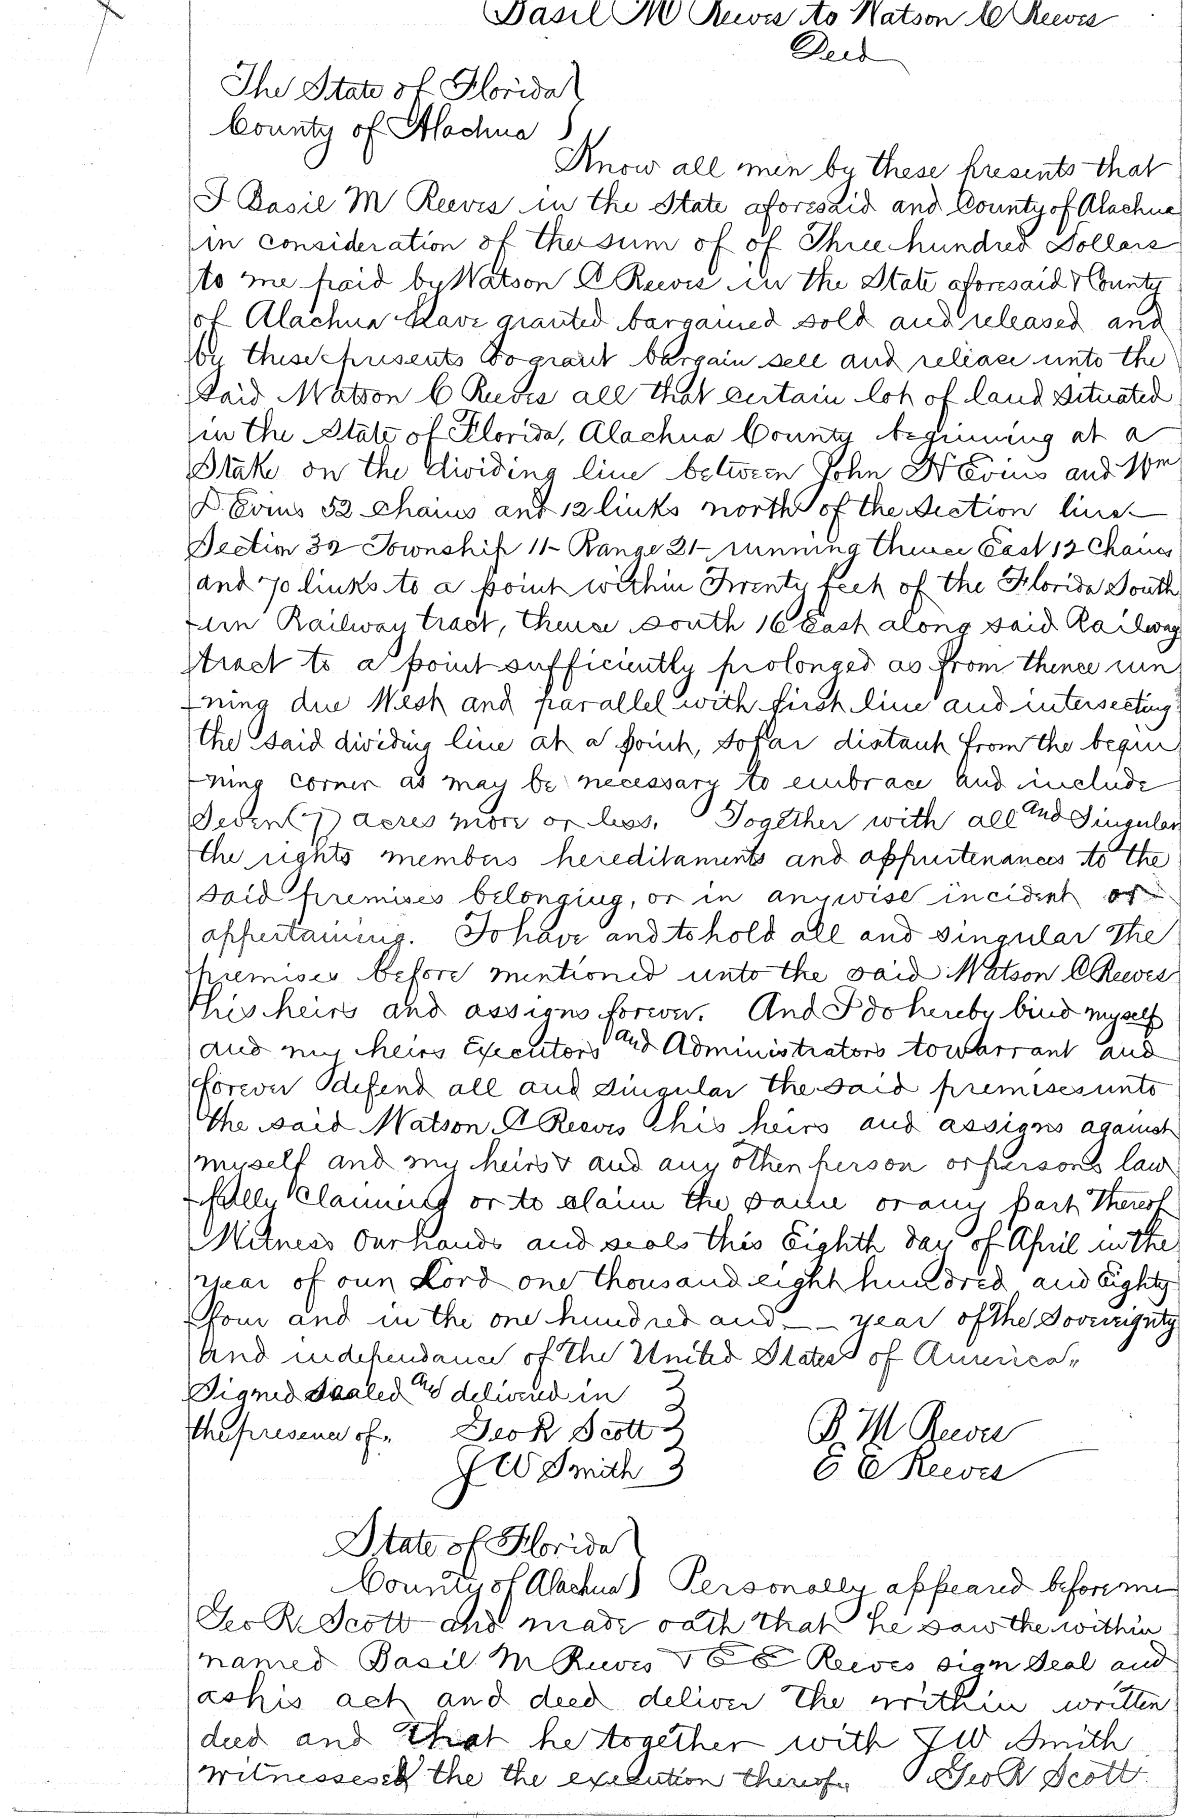 Basil M Reeves to Watson C Reeves
Deed
The State of Florida }
County of Alachua }
Know all men by these presents that
I Basil M Reeves in the State aforesaid and County of Alachua
in consideration of the sum of of Three hundred Dollars
to me paid by Watson C Reeves in the State aforesaid & County
of Alachua have granted bargained sold and released and
by these presents do grant bargain sell and release unto the
said Watson C Reeves all that certain lot of land situated
in the State of Florida, Alachua County beginning at a
Stake on the dividing line between John H Evins and Wm
D. Evins 52 chains and 12 links north of the Section line
Section 32 Township 11- Range 21- running thence East 12 Chains
and 70 links to a point within Twenty feet of the Florida South
-ern Railway tract, thence south 16 East along said Railway
tract to a point sufficiently prolonged as from thence run
-ning due West and parallel with first line and intersecting
the said dividing line at a point, so far distant from the begin
-ning corner as may be necessary to embrace and include
Seven (7) acres more or less. Together with all and Singular
the rights members hereditaments and appurtenances to the
said premises belonging, or in anywise incident or
appertaining. To have and to hold all and singular the
premises before mentioned unto the said Watson C Reeves
his heirs and assigns forever. And I do hereby bind myself
and my heirs Executors and Administrators to warrant and
forever defend all and singular the said premises unto
the said Watson C Reeves his heirs and assigns against
myself and my heirs & and any other person or persons law
-fully Claiming or to claim the same or any part thereof
Witness Our hands and seals this Eighth day of April in the
year of our Lord one thousand eight hundred and Eighty
-four and in the one hundred and _ _ year of the Sovereignty
and independance of the United States of America.,
Signed Sealed and delivered in }
the presence of., Geo R Scott } B M Reeves
J W Smith } E E Reeves
State of Florida }
County of Alachua } Personally appeared before me
Geo R. Scott and made oath that he saw the within
named Basil M Reeves & E E Reeves sign Seal and
as his act and deed deliver the within written
deed and that he together with J W Smith
witnessed the the execution thereof., Geo R Scott